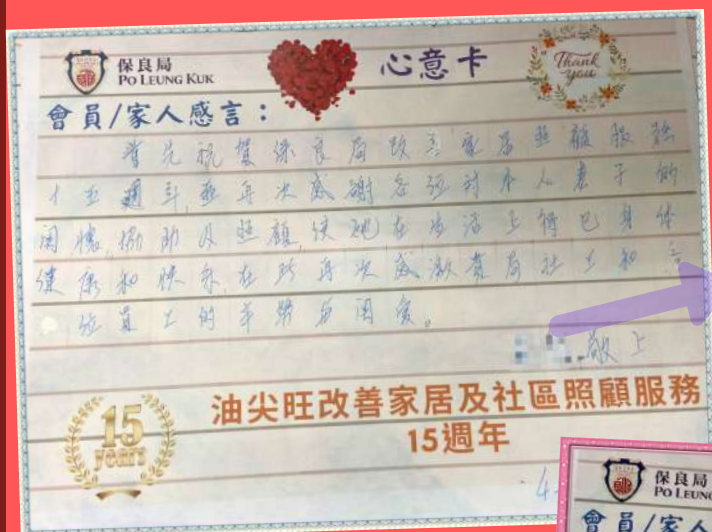 保良局
PO LEUNG KUK
心意卡
Thank you
會員/家人感言：
首先祝賀保良局改善家居照顧服務
十五週年,並再次感謝各位對本人妻子的
關懷,協助及照顧,使她在生活上得已身体
健康和快乐,在此再次感激貴局社工和各
位員工的辛勞與關愛。
敬上
15 years
油尖旺改善家居及社區照顧服務
15週年
保良局
PO LEUNG
會員/家人